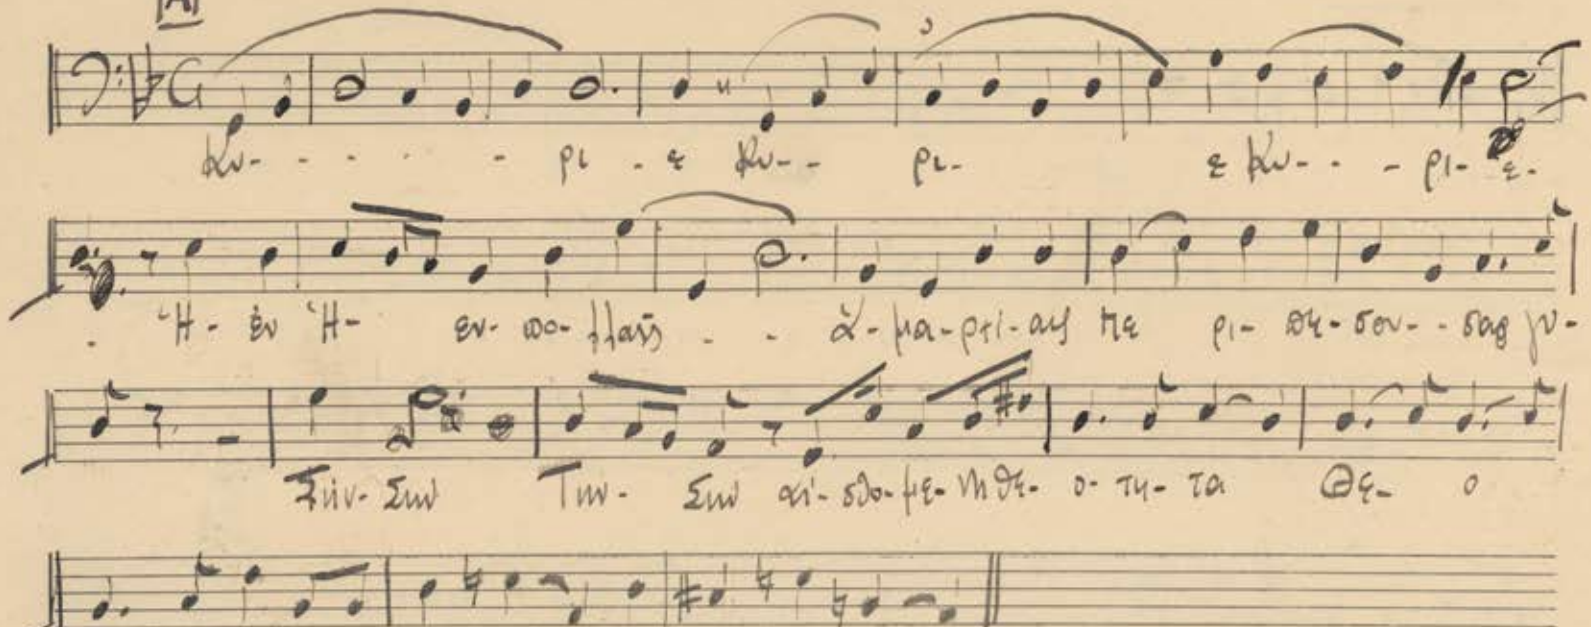 A
Κυ- - - - - ρι - ε Κυ-- ρι- ε Κυ- - - ρι- ε-
- Ἡ- ἐν Ἡ- εν- πολλαῖς - - ἁ-μα-ρτί-αις πε ρι- πε-σου- -σαα γυ-
Τήν- Σὴν Τὴν- Σὴν αἰ-σθο-με-νη θε- ο- τη-τα Θε- ο